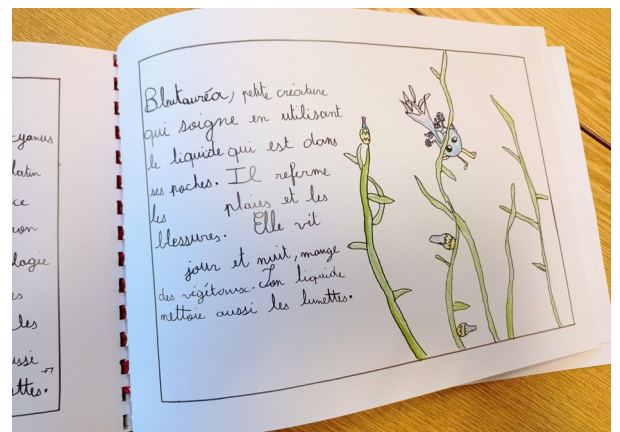 -cyanus
latin
ce
ron
logie
es
les
ussi
ttes.
Bleutauréa, petite créature
qui soigne en utilisant
le liquide qui est dans
ses poches. Il referme
les plaies et les
blessures. Elle vit
jour et nuit, mange
des végétaux. Son liquide
nettoie aussi les lunettes.